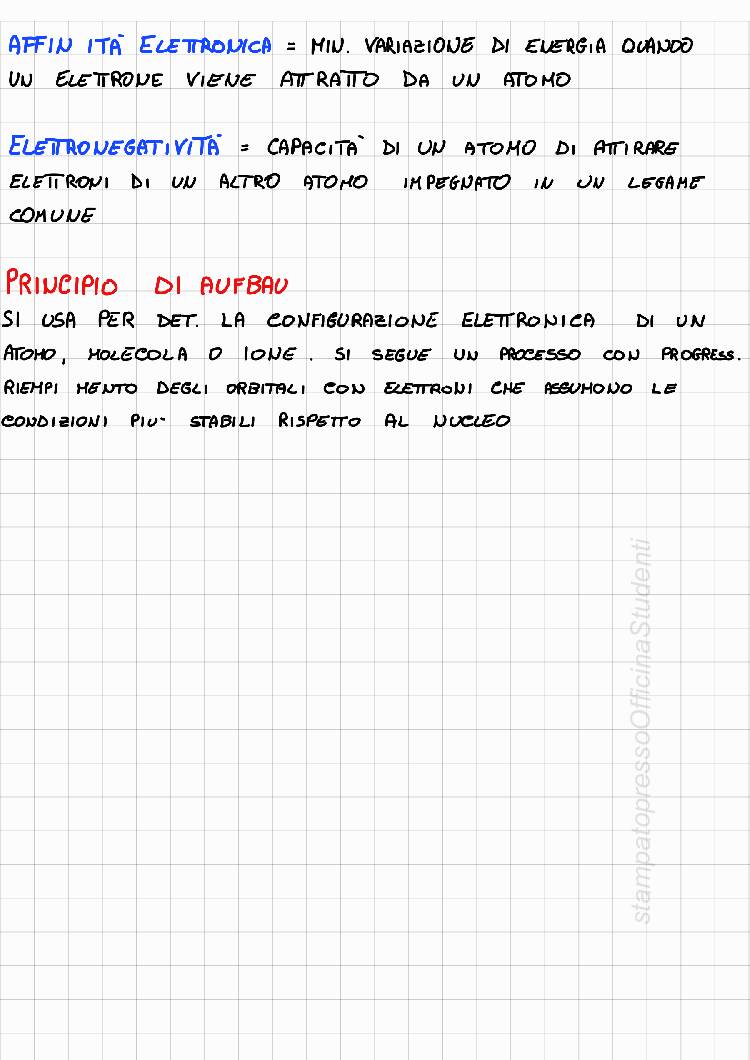 AFFINITÀ ELETTRONICA = MIN. VARIAZIONE DI ENERGIA QUANDO
UN ELETTRONE VIENE ATTRATTO DA UN ATOMO
ELETTRONEGATIVITÀ = CAPACITÀ DI UN ATOMO DI ATTIRARE
ELETTRONI DI UN ALTRO ATOMO IMPEGNATO IN UN LEGAME
COMUNE
PRINCIPIO DI AUFBAU
SI USA PER DET. LA CONFIGURAZIONE ELETTRONICA DI UN
ATOMO, MOLECOLA O IONE. SI SEGUE UN PROCESSO CON PROGRESS.
RIEMPIMENTO DEGLI ORBITALI CON ELETTRONI CHE ASSUMONO LE
CONDIZIONI PIU' STABILI RISPETTO AL NUCLEO
stampatopressoOfficinaStudenti